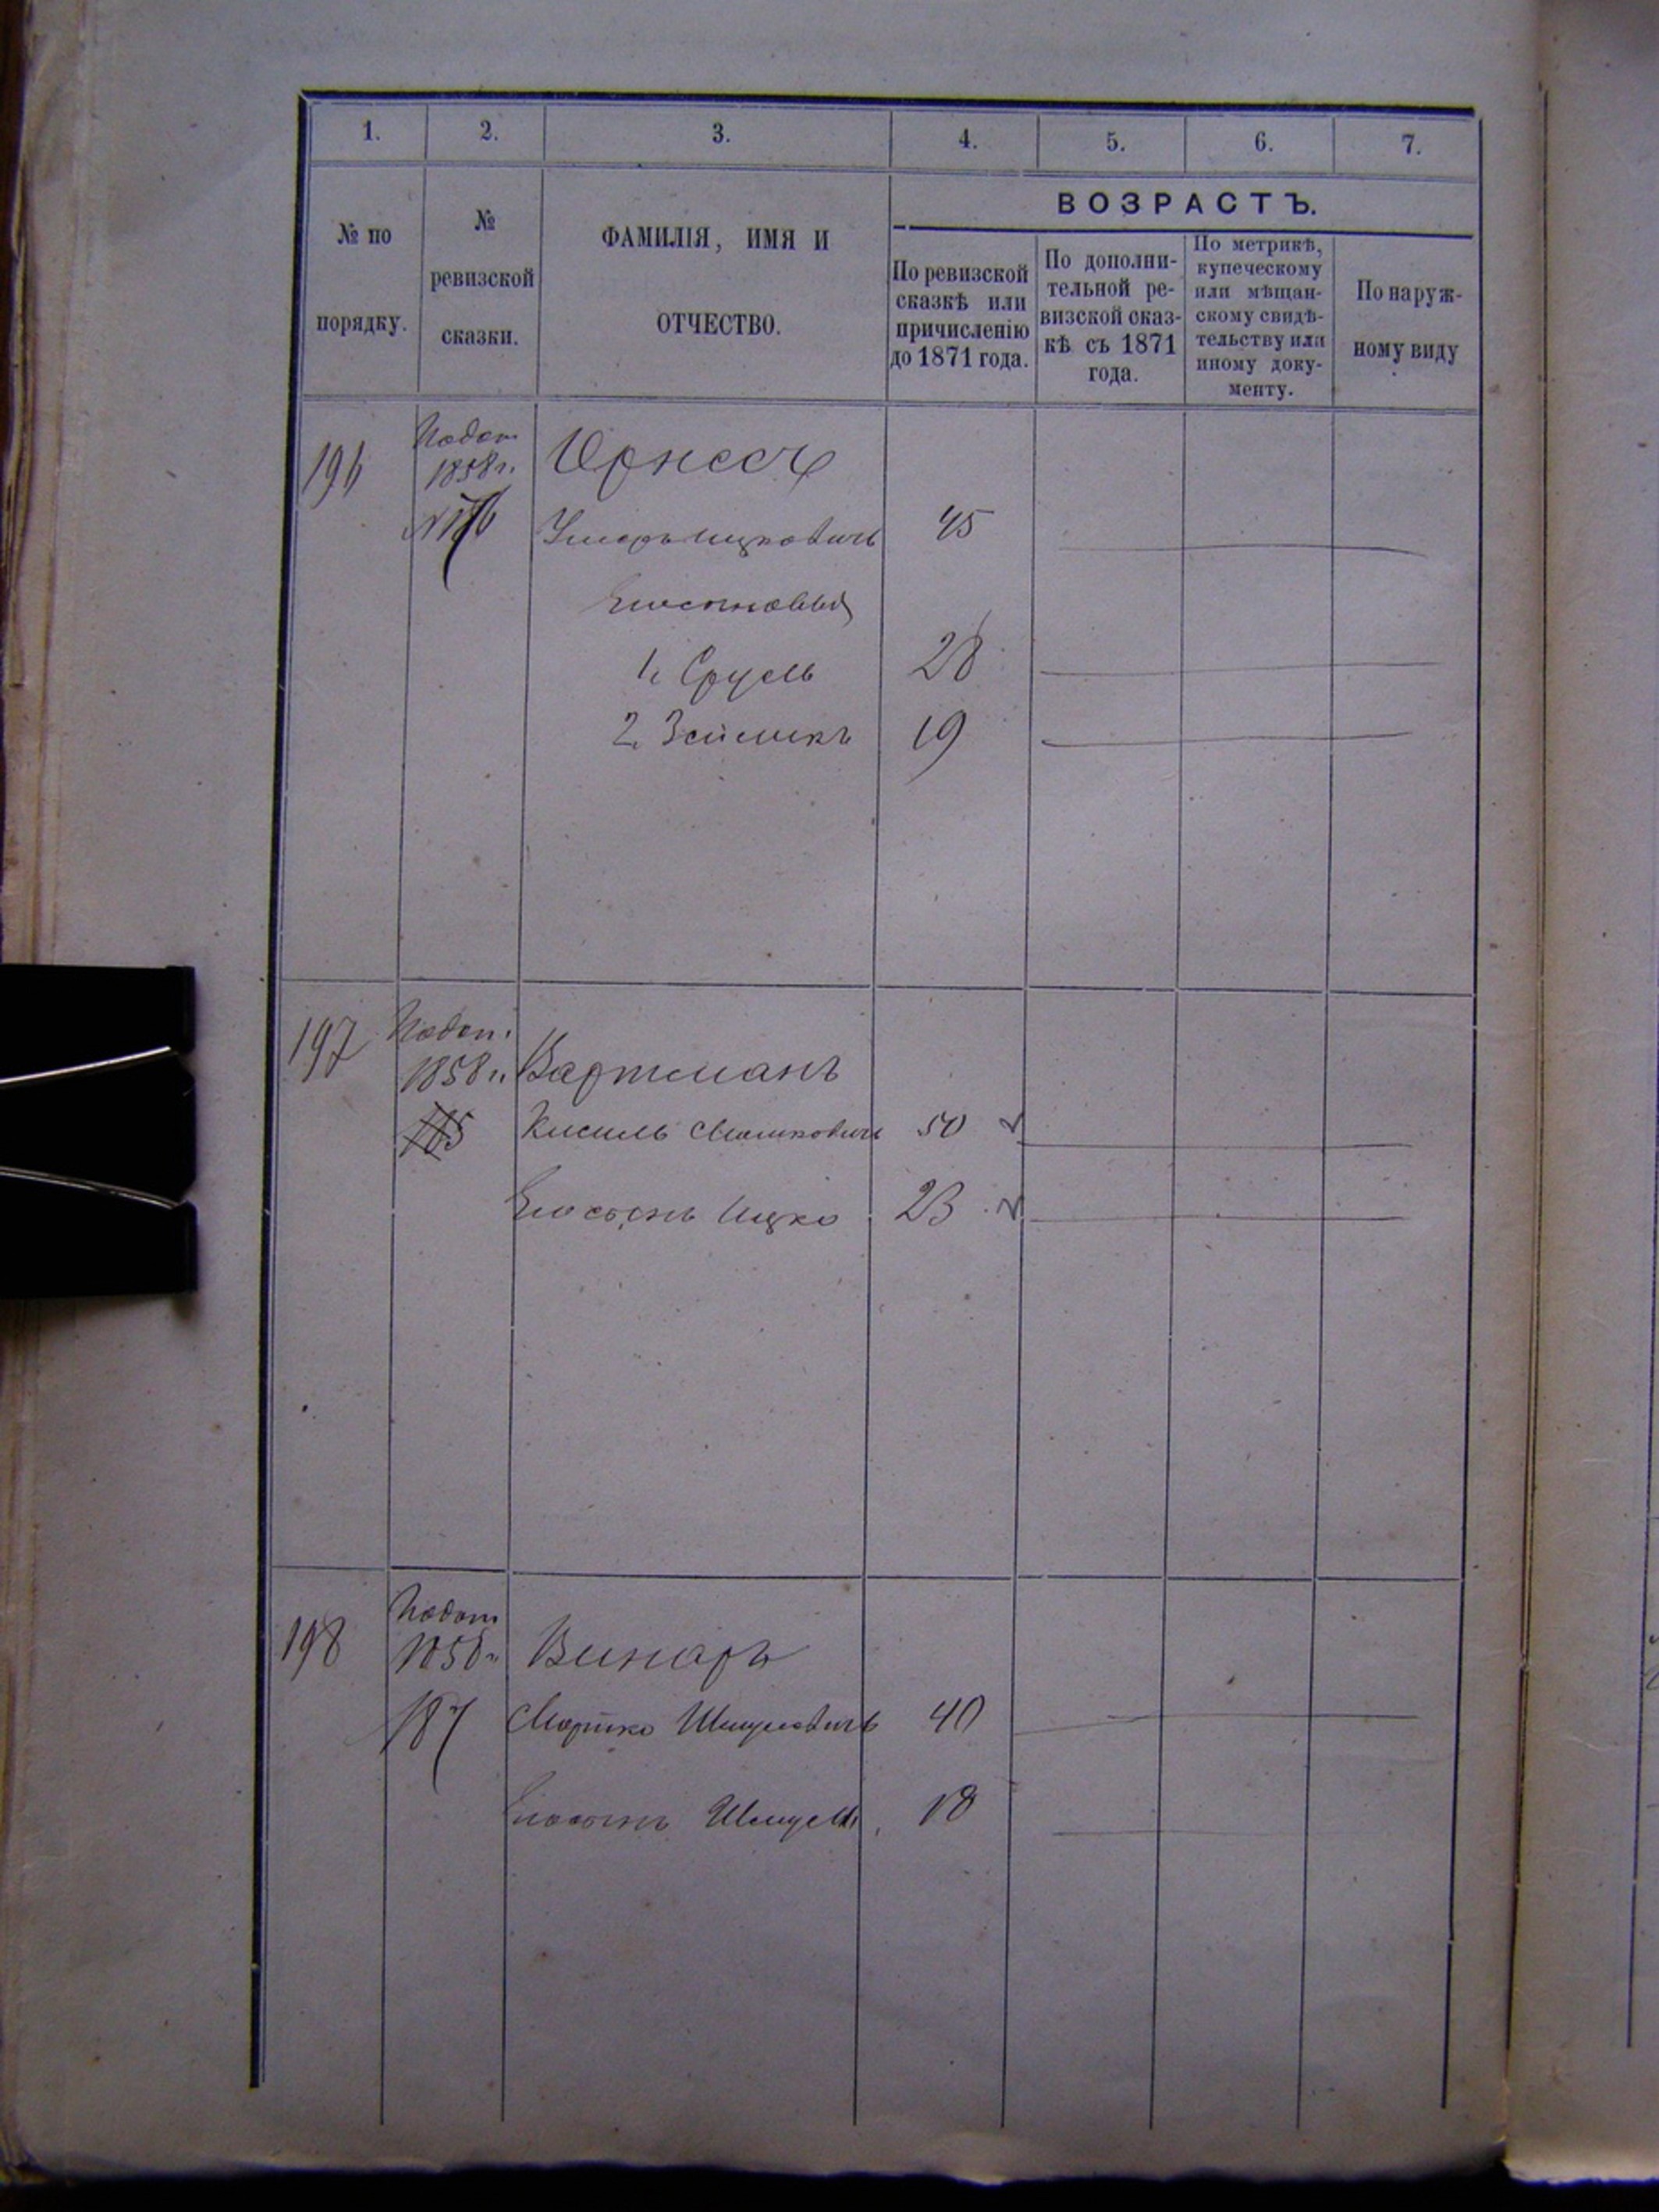 1. 2. 3. 4. 5. 6. 7.
№ по порядку.
№ ревизской сказки.
ФАМИЛІЯ, ИМЯ И ОТЧЕСТВО.
ВОЗРАСТЪ.
По ревизской сказкѣ или причисленію до 1871 года.
По дополнительной ревизской сказкѣ съ 1871 года.
По метрикѣ, купеческому или мѣщанскому свидѣтельству или иному документу.
По наружному виду
196 Подат. 1858 г.
Ицковичъ 45
Его сыновья
1, Сруль 28
2, Зейликъ 19
197 Подат. 1858 г. Вартманъ
185 Кисиль Мошковичъ 50
Его сынъ Ицко 23
198 Подат 1858 г. Винаръ
187 Мортко Шмулевичъ 40
Его сынъ Шмуль 18